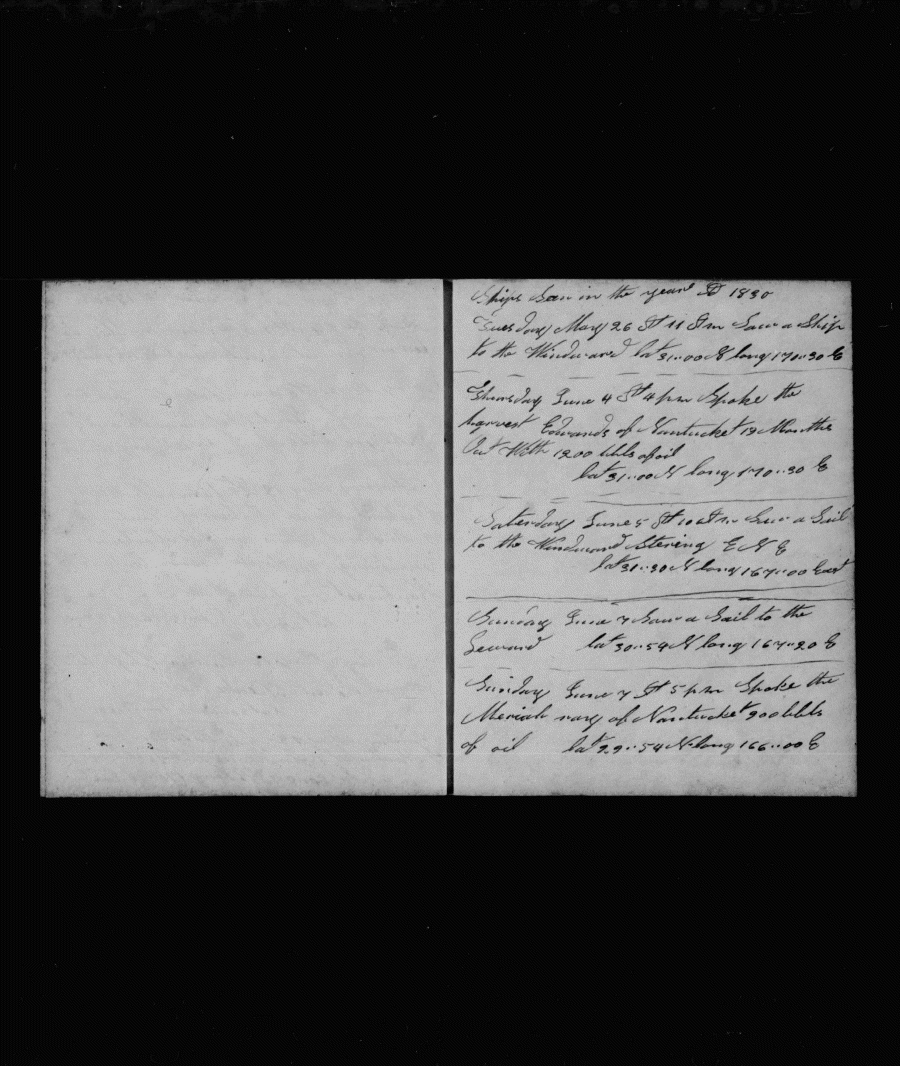 Ships Saw in the year AD 1830
Tuesday May 26 At 11 Am Saw a Ship
to the Windward lat 31..00 N long 170..30 E
Thursday June 4 At 4 pm Spoke the
harvest Edwards of Nantucket 19 Months
Out With 1200 bbls of oil
lat 31..00 N long 170..30 E
Saterday June 5 At 10 Am Saw a Sail
to the Windward Stering E N E
lat 31..30 N long 167..00 East
Sunday June 7 Saw a Sail to the
Leward lat 30..54 N long 167..20 E
Sunday June 7 At 5 pm Spoke the
of Nantucket 900 bbls
of oil lat 29..54 N long 166..00 E